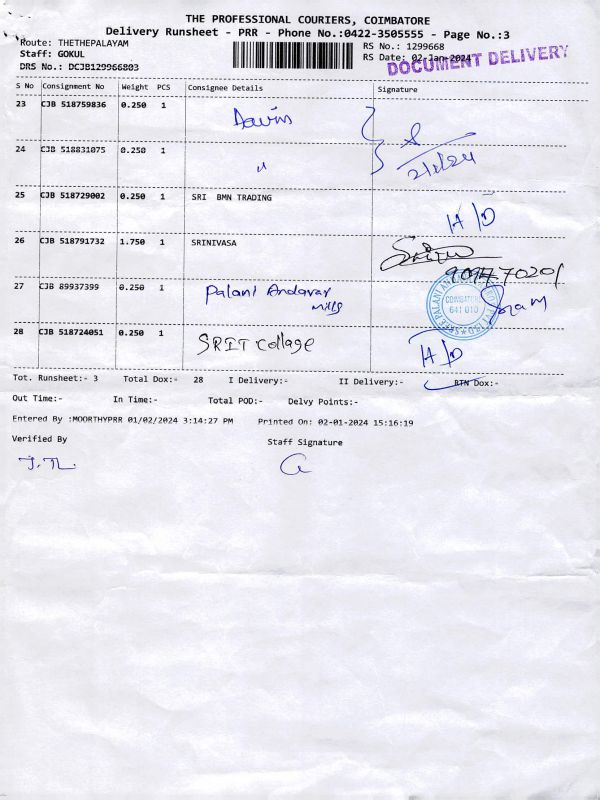 THE PROFESSIONAL COURIERS, COIMBATORE
Delivery Runsheet - PRR - Phone No.:0422-3505555 - Page No.:3
Route: THETHEPALAYAM RS No.: 1299668
Staff: GOKUL RS Date: 02-Jan-2024
DRS No.: DCJB129966803 DOCUMENT DELIVERY
S No Consignment No Weight PCS Consignee Details Signature
23 CJB 518759836 0.250 1
24 CJB 518831075 0.250 1 〃 2/1/24
25 CJB 518729002 0.250 1 SRI BMN TRADING H/D
26 CJB 518791732 1.750 1 SRINIVASA
27 CJB 89937399 0.250 1 Palani Andavar
Mills
COIMBATORE
641 010
28 CJB 518724051 0.250 1 SRIT Collage H/D
Tot. Runsheet:- 3 Total Dox:- 28 I Delivery:- II Delivery:- RTN Dox:-
Out Time:- In Time:- Total POD:- Delvy Points:-
Entered By :MOORTHYPRR 01/02/2024 3:14:27 PM Printed On: 02-01-2024 15:16:19
Verified By Staff Signature